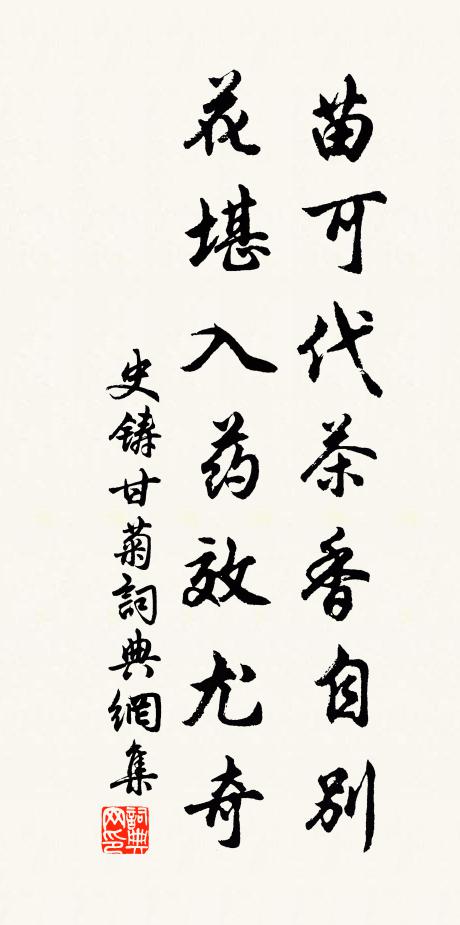 苗可代茶香自别
花堪入药效尤奇
史鋳甘菊詞典網集
詞典
网印